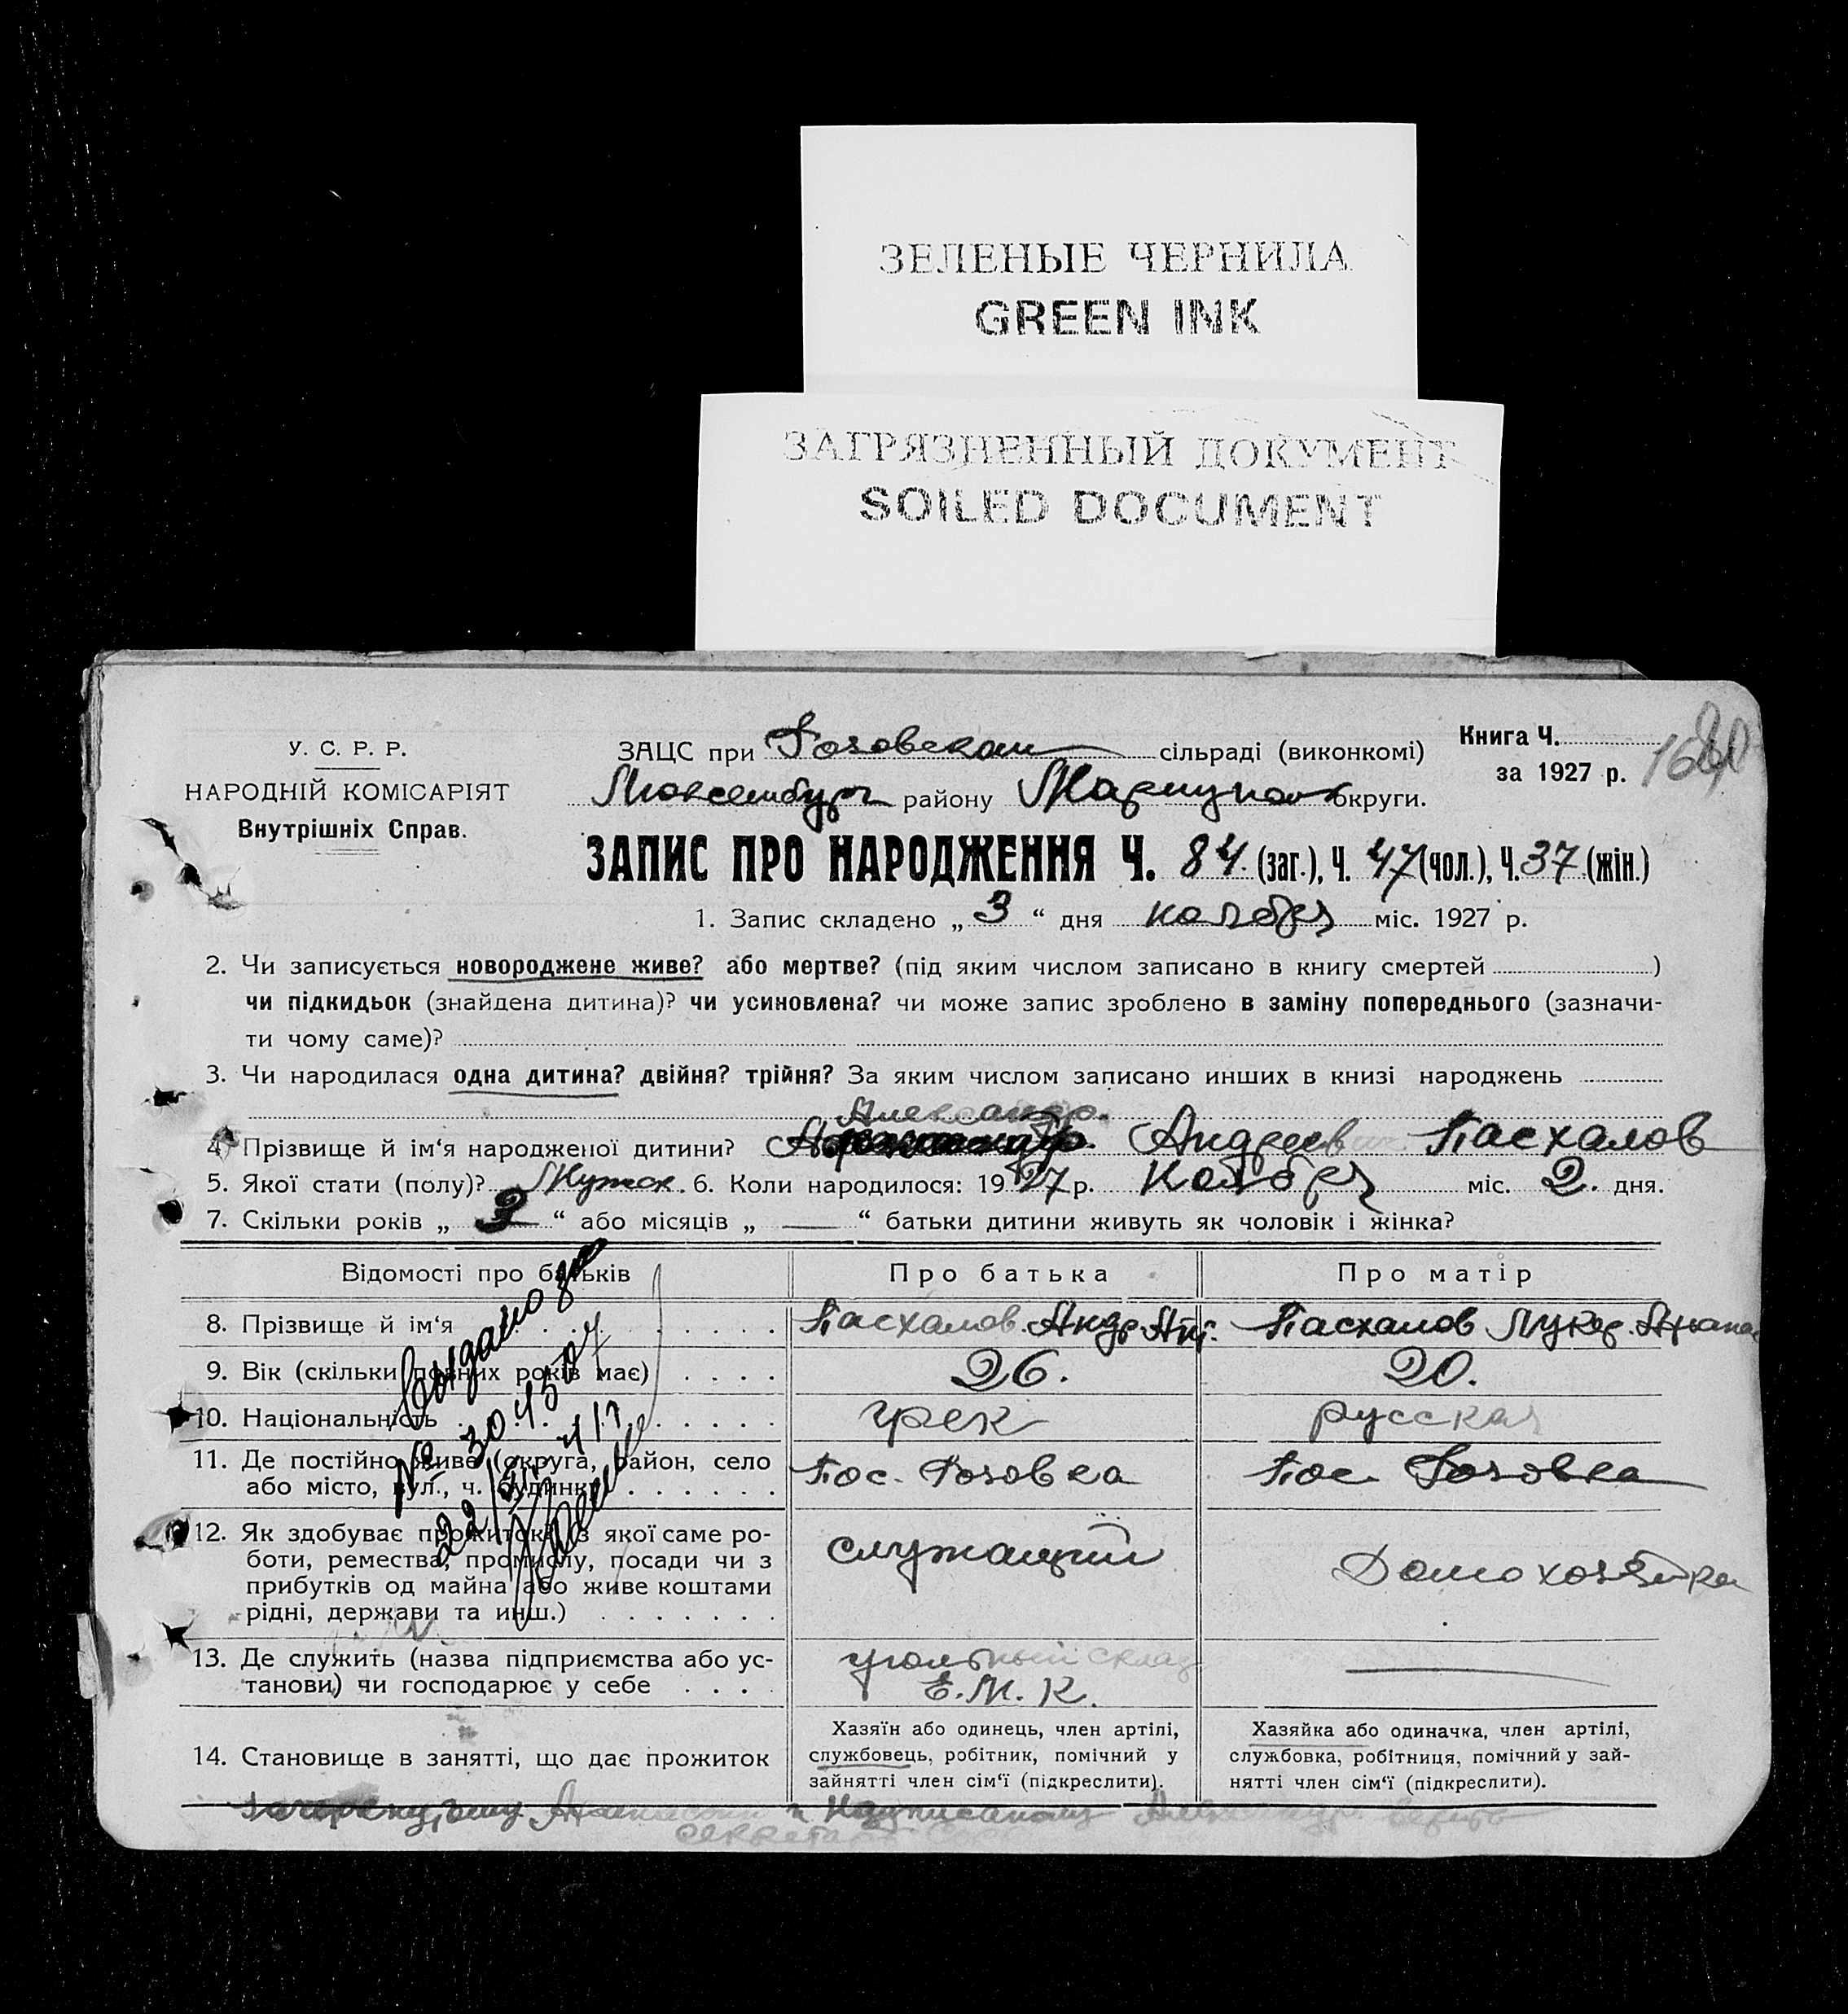 ЗЕЛЕНЫЕ ЧЕРНИЛА
GREEN INK
ЗАГРЯЗНЕННЫЙ ДОКУМЕНТ
SOILED DOCUMENT
У. С. Р. Р.
НАРОДНІЙ КОМІСАРІЯТ
Внутрішніх Справ.
ЗАЦС при Розовском сільраді (виконкомі)
Люксембург району Мариуполь округи.
Книга Ч.
за 1927 р.
ЗАПИС ПРО НАРОДЖЕННЯ Ч. 84. (заг.), Ч. 47 (чол.), Ч. 37 (жін.)
1. Запис складено „ 3 “ дня ноября міс. 1927 р.
2. Чи записується новороджене живе? або мертве? (під яким числом записано в книгу смертей )
чи підкидьок (знайдена дитина)? чи усиновлена? чи може запис зроблено в заміну попереднього (зазначи-
ти чому саме)?
3. Чи народилася одна дитина? двійня? трійня? За яким числом записано инших в книзі народжень
Александр.
4. Прізвище й ім‘я народженої дитини? Андреев Пасхалов
5. Якої стати (полу)? Мужск. 6. Коли народилося: 1927 р. Ноября міс. 2. дня.
7. Скільки років „ “ або місяців „ — “ батьки дитини живуть як чоловік і жінка?
Відомості про батьків Про батька Про матір
8. Прізвище й ім‘я Пасхалов Андр. Пасхалов Лукер.
9. Вік (скільки повних років має) 26. 20.
10. Національність грек русская
11. Де постійно живе (округа, район, село
або місто, вул., ч. будинку Пос. Розовка Пос. Розовка
12. Як здобуває прожиток (з якої саме ро-
боти, ремества, промислу, посади чи з
прибутків од майна або живе коштами
рідні, держави та инш.) служащий Домохозяйка
13. Де служить (назва підприємства або ус-
танови) чи господарює у себе угольный склад
Е. М. К.
14. Становище в занятті, що дає прожиток
Хазяїн або одинець, член артілі,
службовець, робітник, помічний у
зайнятті член сім‘ї (підкреслити).
Хазяйка або одиначка, член артілі,
службовка, робітниця, помічний у зай-
нятті член сім‘ї (підкреслити).
Выдано
№
зачеркнутому надписаному